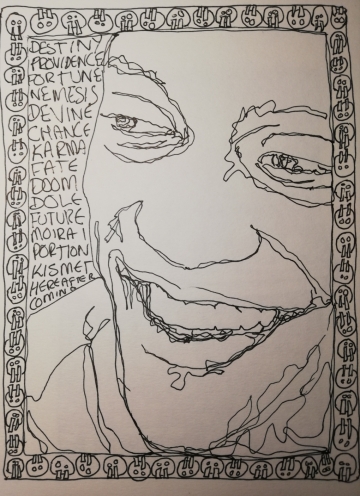 DESTINY
PROVIDENCE
FORTUNE
NEMESIS
DEVINE
CHANCE
KARMA
FATE
DOOM
DOLE
FUTURE
MOIRAI
PORTION
KISMET
HEREAFTER
COMING